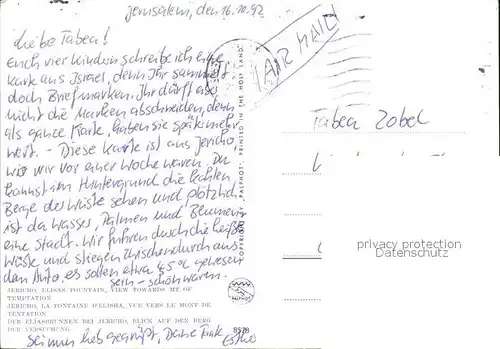 Jerusalem, den 16.10.92
Liebe Tabea!
Euch vier Kindern schreibe ich eine
Karte aus Israel, denn Ihr sammelt
doch Briefmarken. Ihr dürft aber
nicht die Marken abschneiden, denn
als ganze Karte haben sie später mehr
Wert. – Diese Karte ist aus Jericho,
wo wir vor einer Woche waren. Du
kannst im Hintergrund die kahlen
Berge der Wüste sehen und plötzlich
ist da Wasser, Palmen und Blumen u.
eine Stadt. Wir fuhren durch die heiße
Wüste und stiegen zwischendurch aus
dem Auto, es sollen etwa 45°C gewesen
sein – schön warm.
JERICHO, ELISAS FOUNTAIN, VIEW TOWARDS MT OF
TEMPTATION
JERICHO, LA FONTAINE D'ELISHA, VUE VERS LE MONT DE
TENTATION
DER ELIASBRUNNEN BEI JERICHO, BLICK AUF DEN BERG
DER VERSUCHUNG
Sei nun lieb gegrüßt, Deine Tante
COPYRIGHT BY "PALPHOT", PRINTED IN THE HOLY LAND
PALPHOT
8578
AIR MAIL
Tabea Zobel
privacy protection
Datenschutz